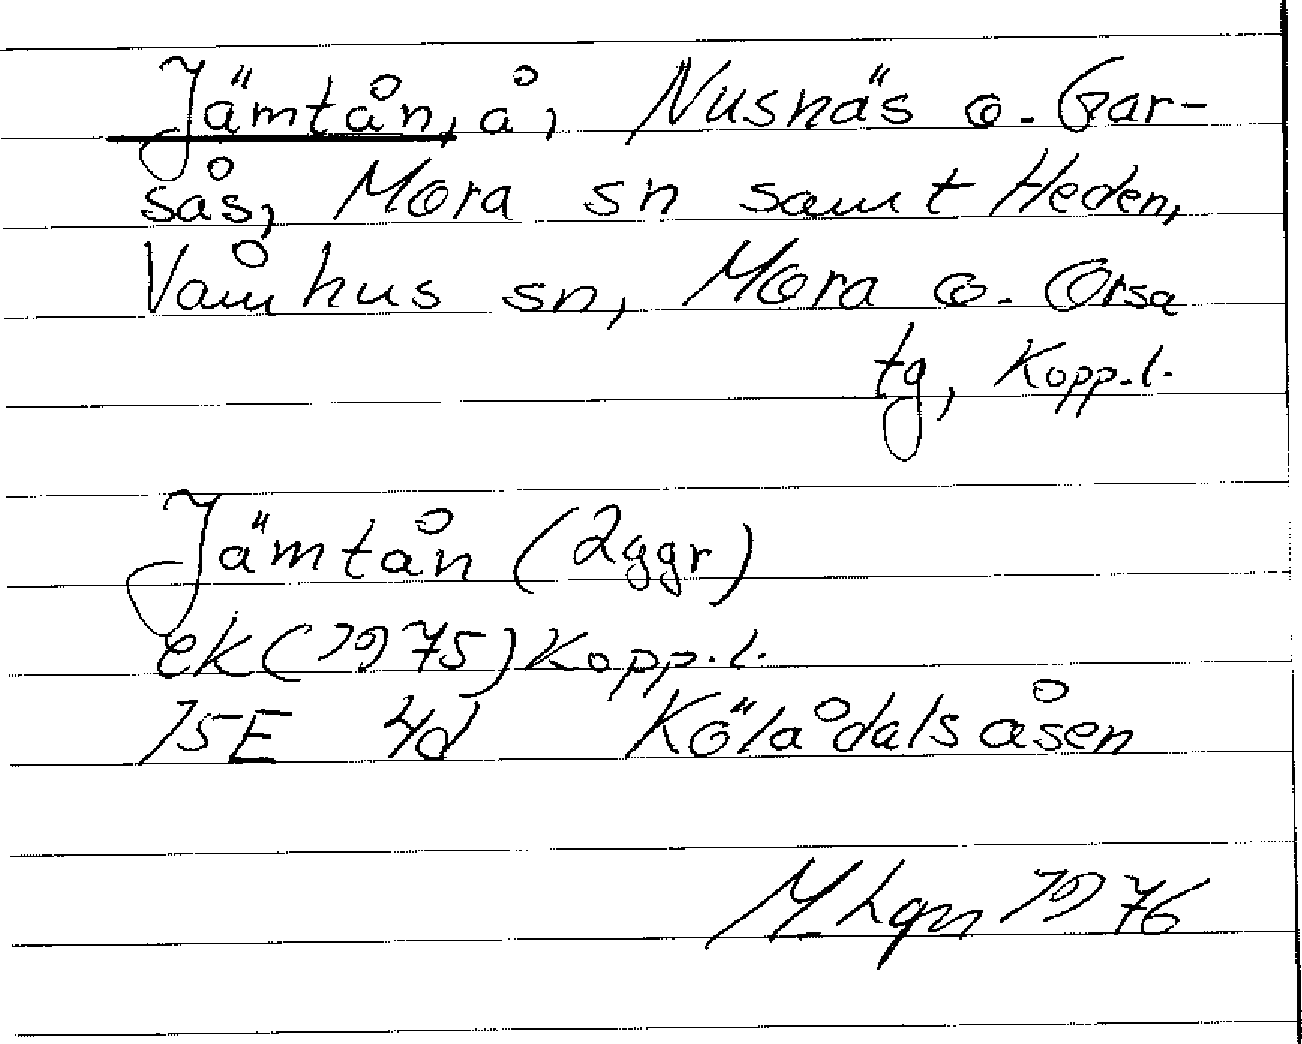 Jämtån, å, Nusnäs o. Gar-
sås, Mora sn samt Heden,
Våmhus sn, Mora o. Orsa
tg, Kopp.l.
Jämtån (2ggr)
ek(1975) Kopp.l.
15E 4d Kölådalsåsen
M Lgn 1976